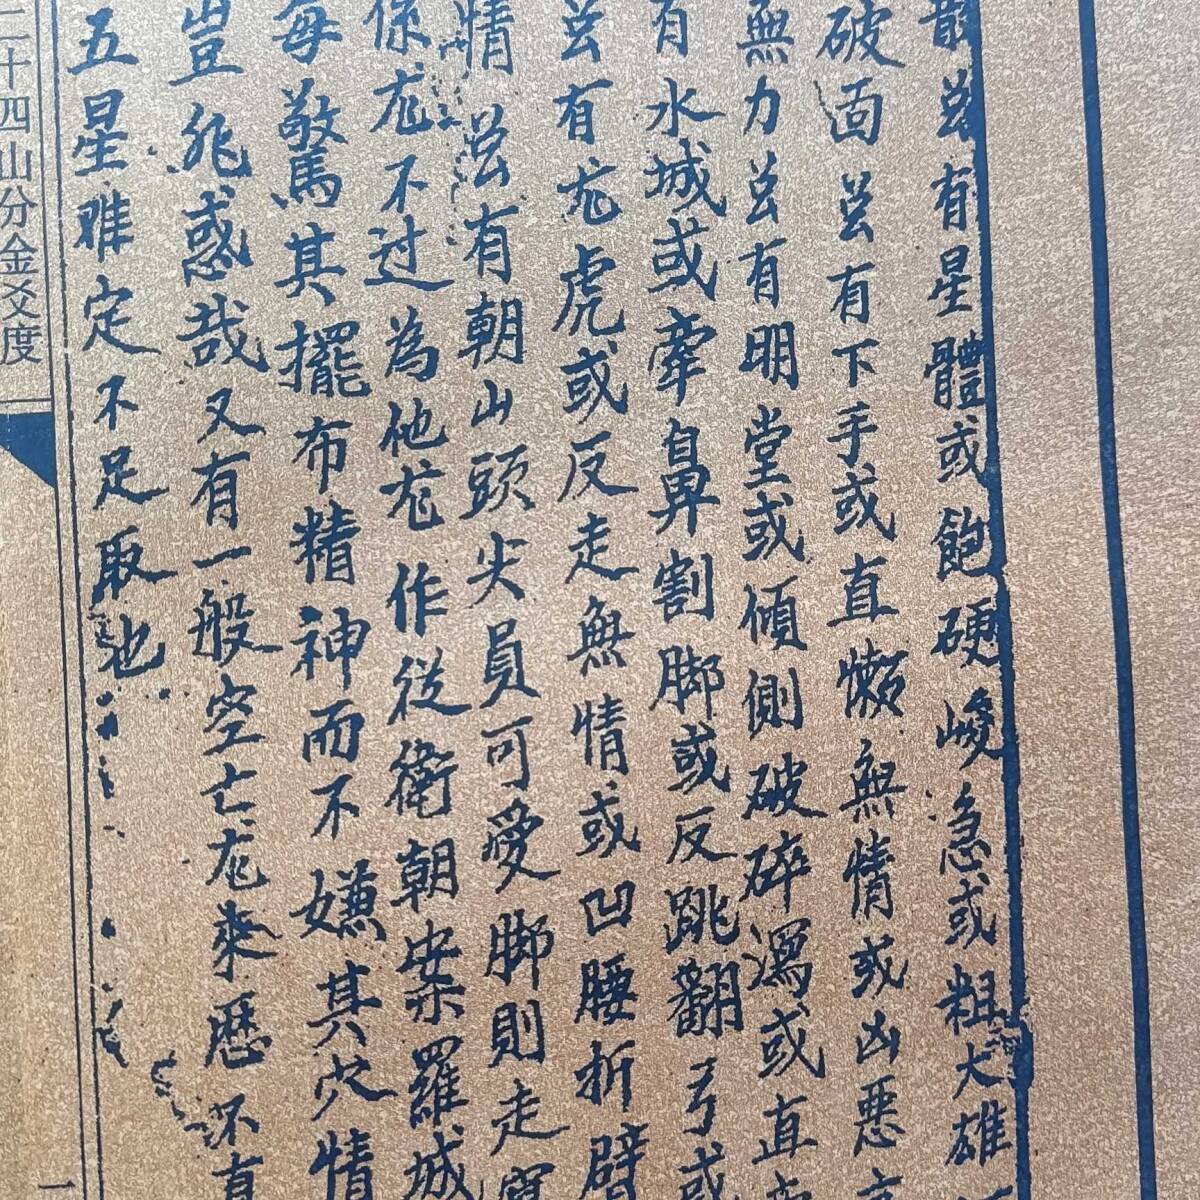 有星體或飽硬峻急或粗大雄
破面兰有下手或直懶無情或凶惡
無力兰有明堂或傾側破碎瀉或直
有水城或牽鼻割脚或反跳翻弓或
兰有尨虎或反走無情或凹腰折臂
情兰有朝山頭尖員可愛脚則走
係尨不过為他尨作從衛朝案羅城
每敬馬其擺布精神而不嫌其穴情
豈能惑哉又有一般空亡尨來歷不真
五星难定不足取也
二十四山分金爻度
一